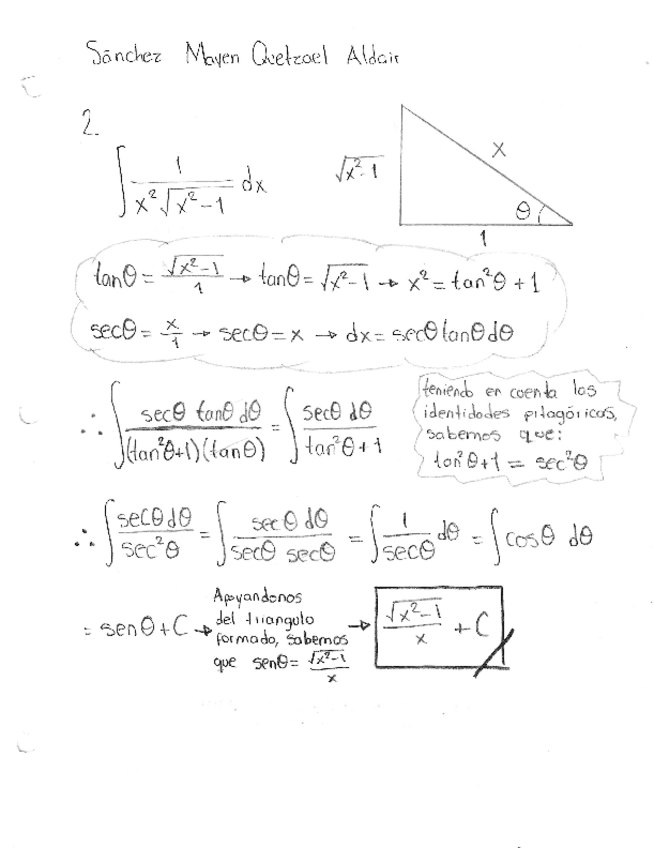 Sánchez Mayen Quetzael Aldair
2.
∫ 1/(x²√(x²-1)) dx
√(x²-1)
x
θ
1
tanθ = √(x²-1)/1 → tanθ = √(x²-1) → x² = tan²θ + 1
secθ = x/1 → secθ = x → dx = secθ tanθ dθ
∴ ∫ secθ tanθ dθ/((tan²θ+1)(tanθ)) = ∫ secθ dθ/(tan²θ+1)
teniendo en cuenta las
identidades pitagóricas,
sabemos que:
tan²θ+1 = sec²θ
∴ ∫ secθ dθ/sec²θ = ∫ secθ dθ/(secθ secθ) = ∫ 1/secθ dθ = ∫ cosθ dθ
= senθ + C →
Apoyandonos
del triangulo
formado, sabemos
que senθ = √(x²-1)/x
→ √(x²-1)/x + C